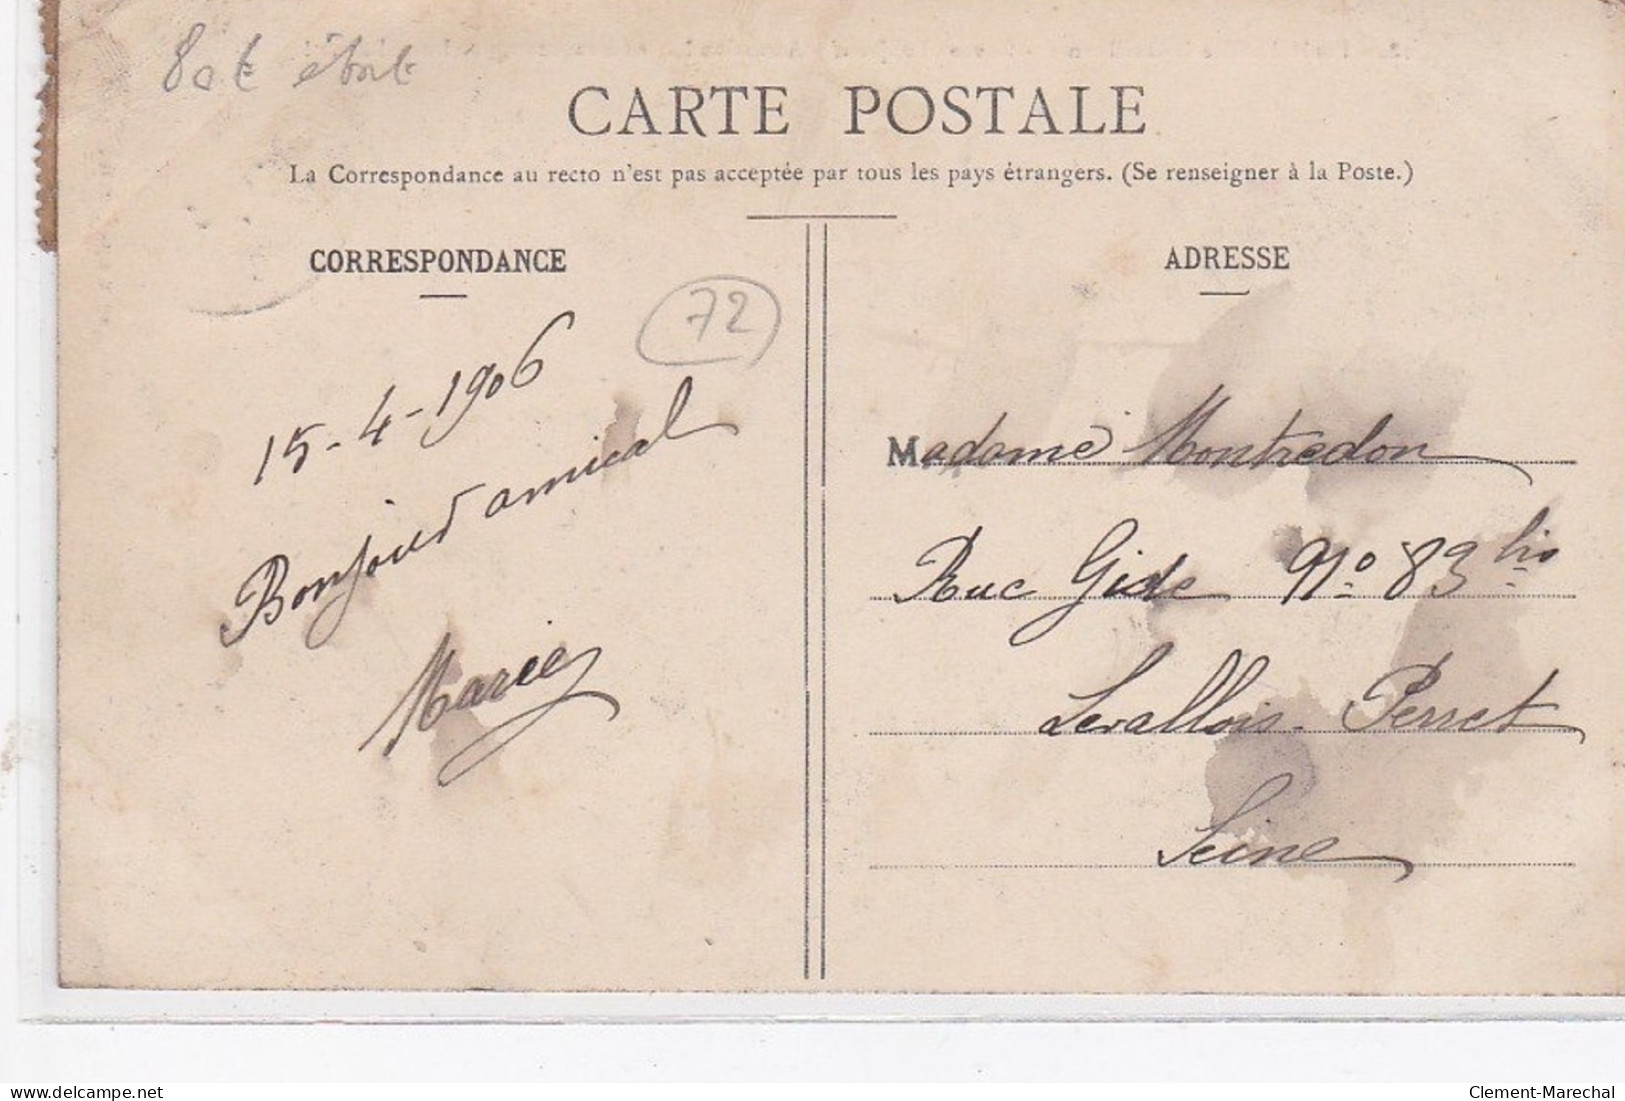 CARTE POSTALE
La Correspondance au recto n'est pas acceptée par tous les pays étrangers. (Se renseigner à la Poste.)
CORRESPONDANCE
72
15-4-1906
Bonjour amical
Marie
ADRESSE
Madame Montredon
Rue Gide No. 83 bis
Levallois-Perret
Seine
delcampe.net
Clement-Marechal